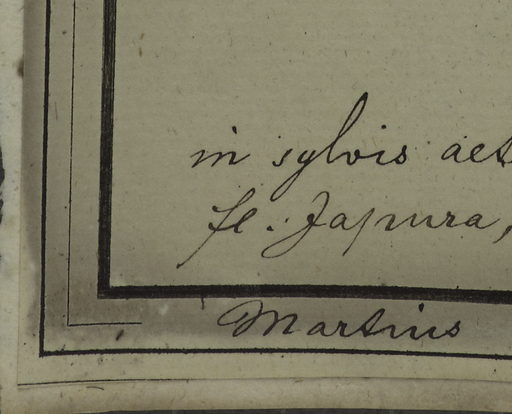 in sylvis aet
fl. Japura,
Martius